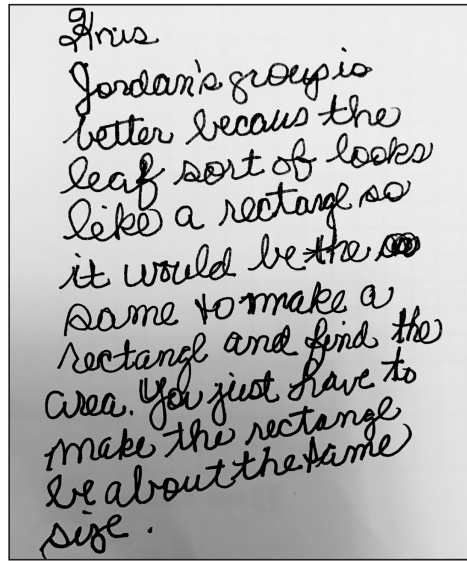 Kris
Jordan's group is
better becaus the
leaf sort of looks
like a rectangl so
it would be the
same to make a
rectangl and find the
area. You just have to
make the rectangle
be about the same
size.